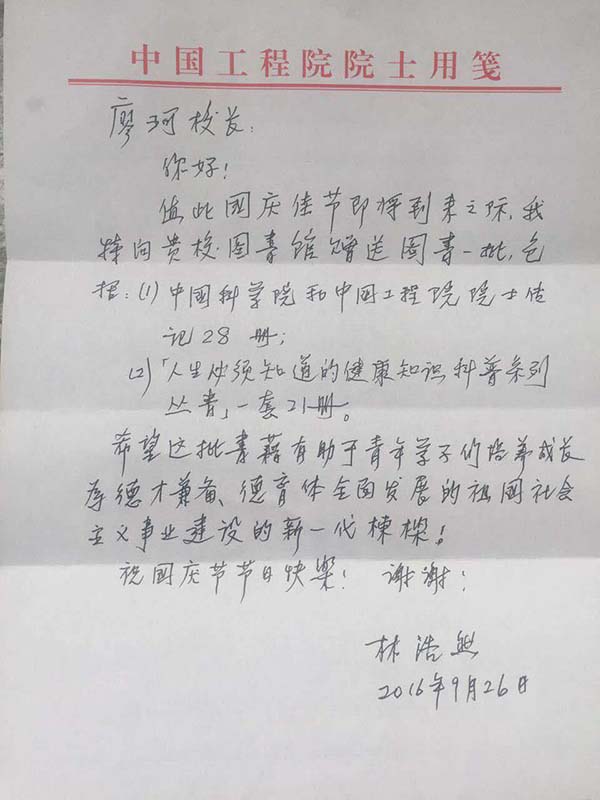 中国工程院院士用笺
廖珂校长:
你好!
值此國庆佳节即将到来之际,我
特向贵校图書馆赠送图書一批,包
括:(1)中国科学院和中国工程院院士传
记28册;
(2)「人生必须知道的健康知识科普系列
丛書」一套21册。
希望这批書藉有助于青年学子们培养成长
为德才兼备、德育体全面发展的祖国社会
主义事业建设的新一代栋樑!
祝國庆节节日快樂! 谢谢!
林浩然
2016年9月26日